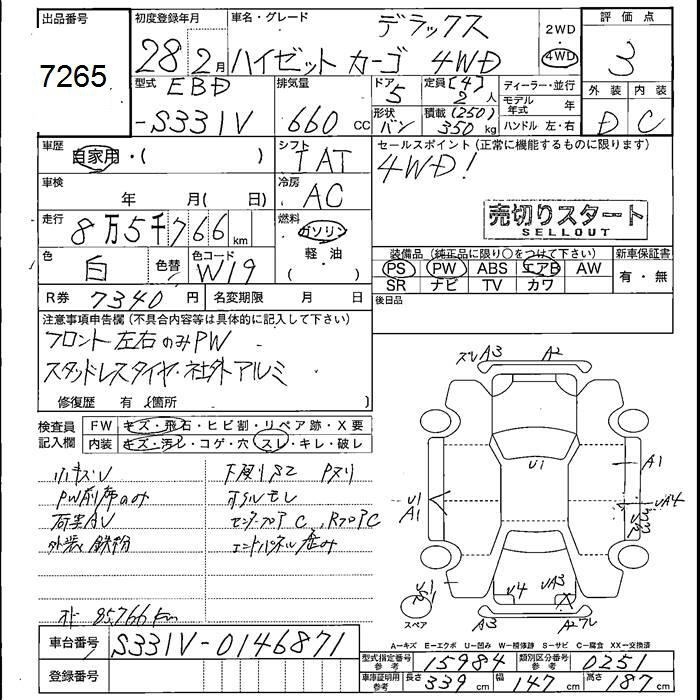 出品番号
7265
初度登録年月
28年 2月
車名・グレード
デラックス
ハイゼット カーゴ 4WD
2WD
4WD
評価点
3
外装 内装
D C
型式
EBD
-S331V
排気量
660 cc
ドア
5
形状
バン
定員 [4]
2人
積載 (250)
350 kg
ディーラー・並行
モデル年式 年
ハンドル 左・右
車歴
自家用・( )
シフト
IAT
セールスポイント (正常に機能するものに限ります)
4WD!
車検
年 月( 日)
冷房
AC
走行
8万5千766 km
燃料
ガソリン
軽・油
( )
売切りスタート
SELLOUT
色
白
色替
色コード
W19
装備品 (純正品に限り○をつけて下さい)
PS PW ABS エアB AW
SR ナビ TV カワ
新車保証書
有・無
R券 7340円
名変期限 月 日
後日品
注意事項申告欄 (不具合内容等は具体的に記入して下さい)
フロント左右のみPW
スタッドレスタイヤ・社外アルミ
修復歴 有 (箇所 )
検査員記入欄
FW キズ・飛石・ヒビ割・リペア跡・X要
内装 キズ・汚レ・コゲ・穴・スレ・キレ・破レ
小キズU
下廻りサビ Pスリ
PW前席のみ
オイルモレ
荷室AU
センターフロアC、RフロアC
外装鉄粉
エンドパネル歪み
オド 85,766km
スレ A3 A2
U1
A1
U1
A1
UA4
U4
UA3
A3
スペア
車台番号
S331V-0146871
登録番号
A-キズ E-エクボ U-凹み W-補修跡 S-サビ C-腐食 XX-交換済
型式指定番号 参考
15984
類別区分番号 参考
0251
車庫証明用 参考
長さ 339 cm
幅 147 cm
高さ 187 cm